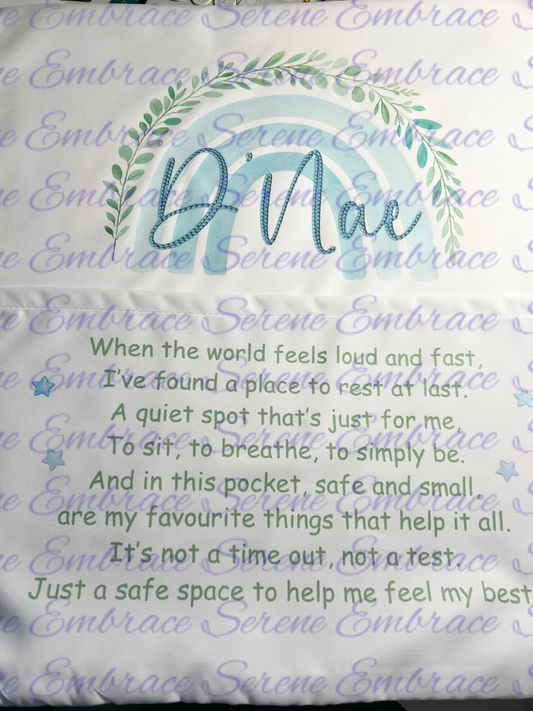 Serene Embrace
D'Nae
When the world feels loud and fast,
I've found a place to rest at last.
A quiet spot that's just for me,
To sit, to breathe, to simply be.
And in this pocket, safe and small,
are my favourite things that help it all.
It's not a time out, not a test.
Just a safe space to help me feel my best